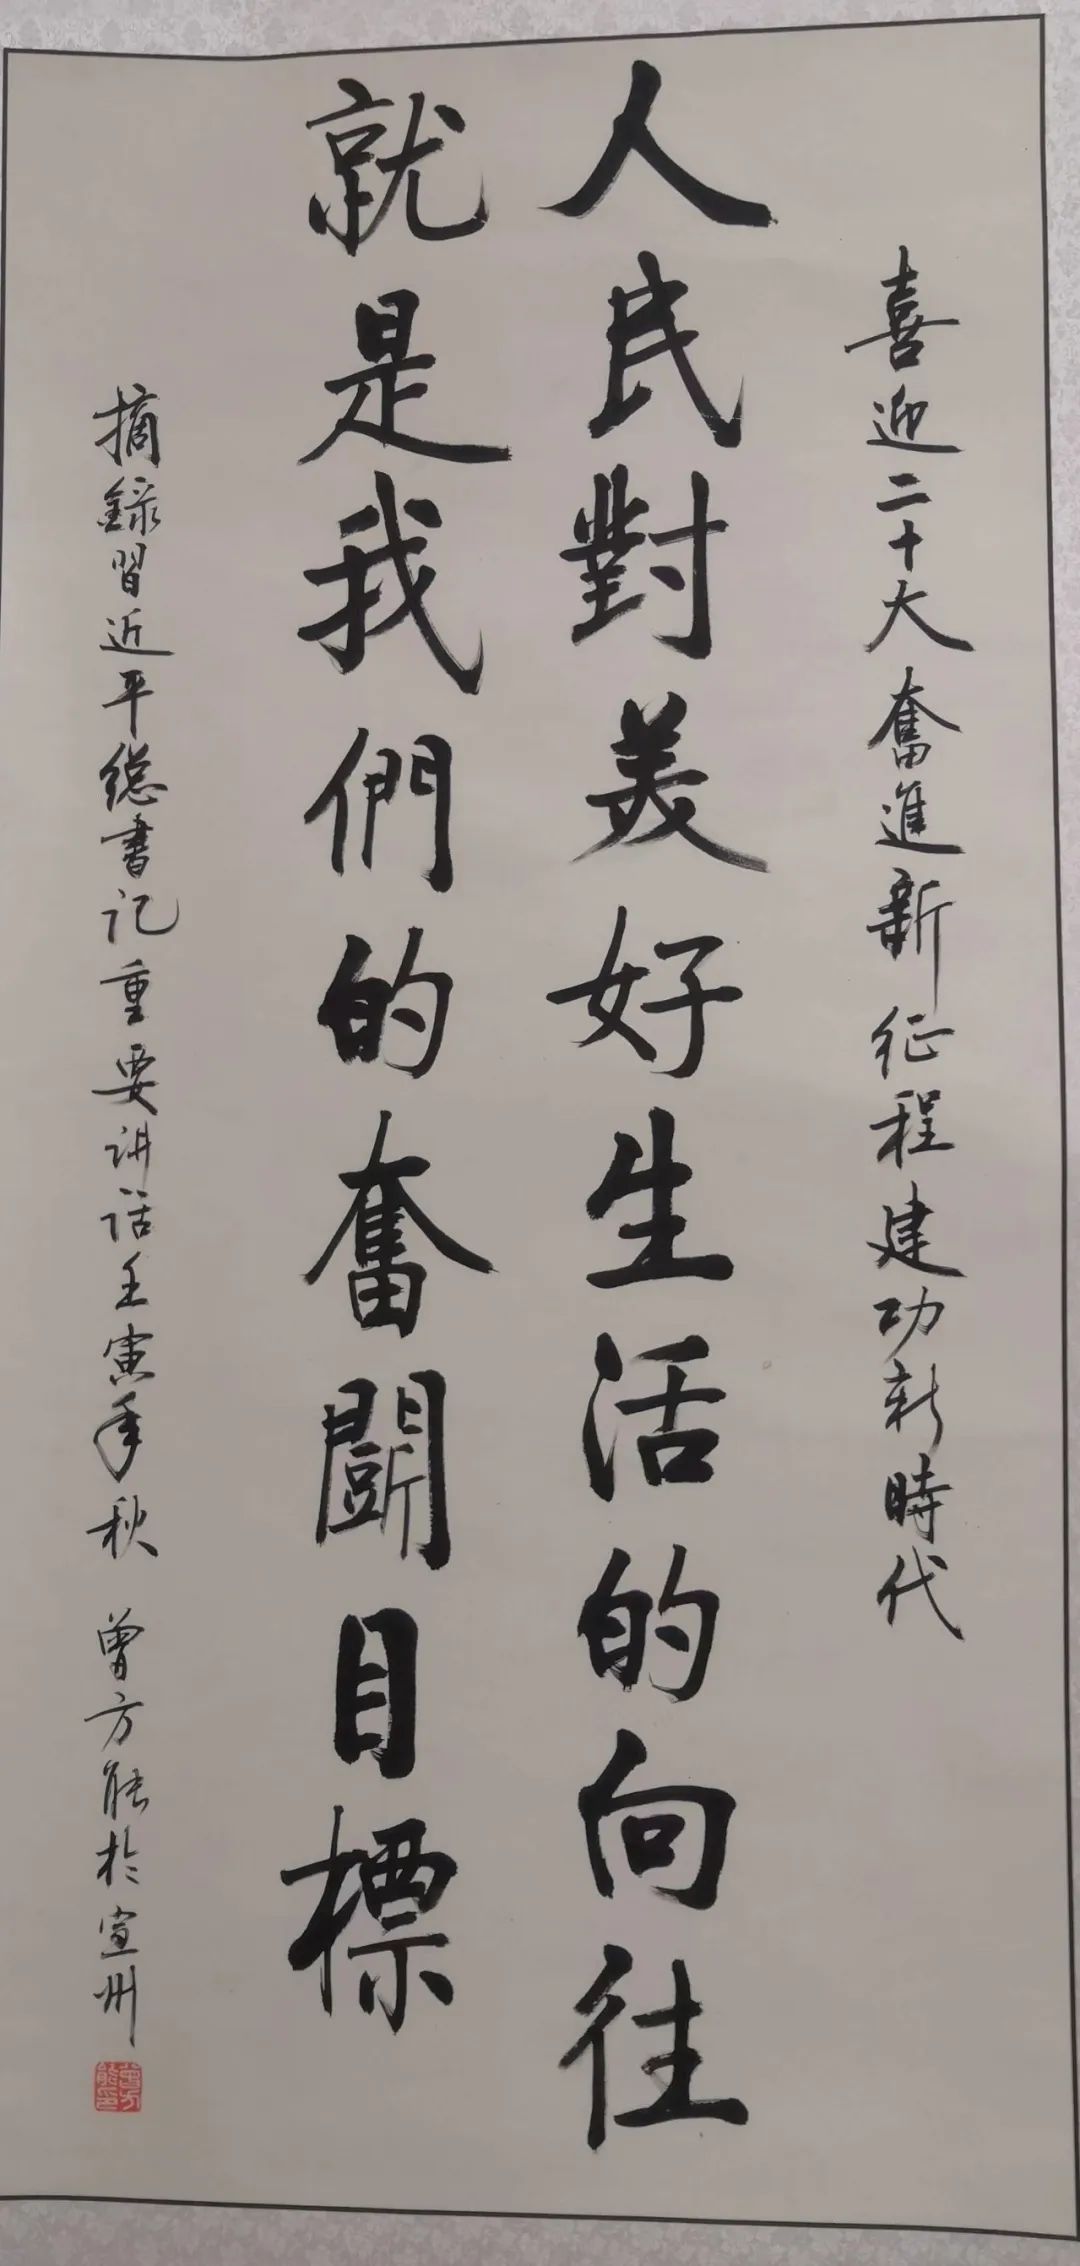 喜迎二十大奮進新征程建功新時代
人民對美好生活的向往
就是我們的奮鬪目標
摘錄習近平總書记重要讲话壬寅年秋 曾方能於宣州
曾方能印